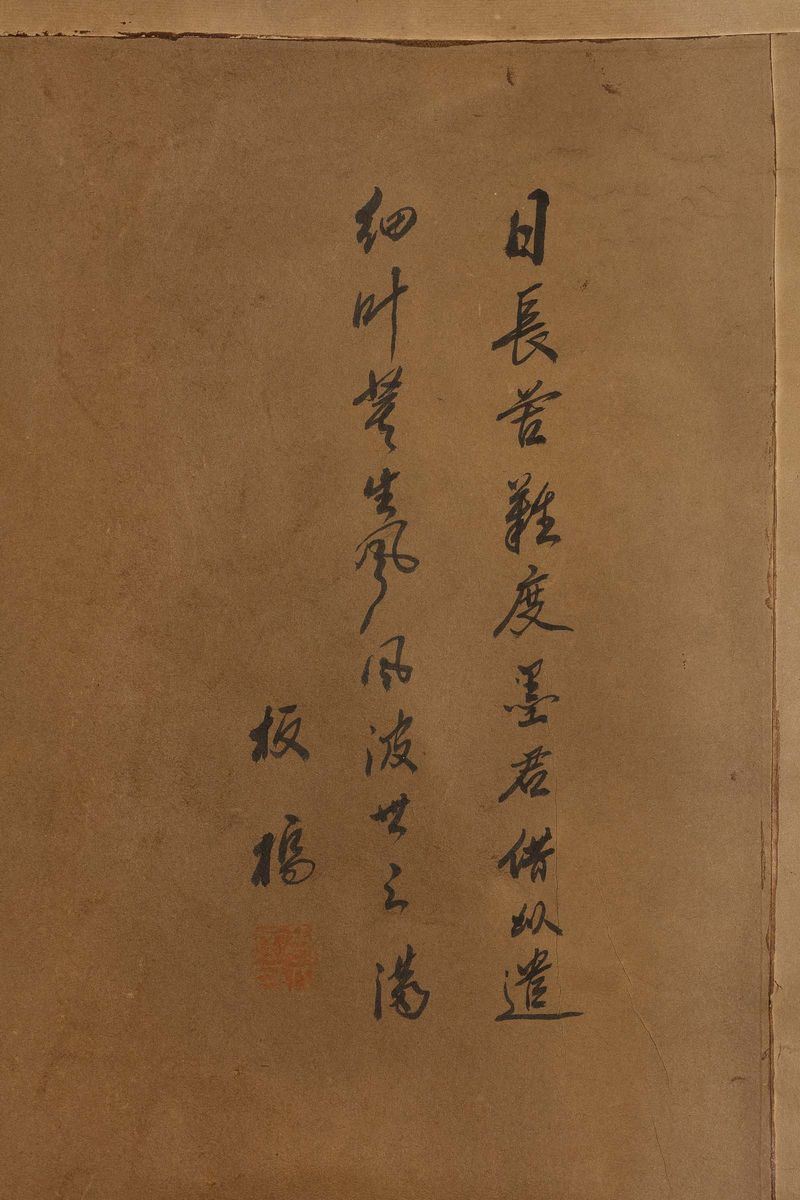 日長苦難度墨君借以遣
細叶生風風波世之
板橋